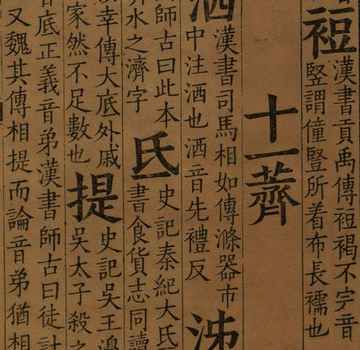 裋
漢書貢禹傳裋褐不字音
豎謂僮豎所着布長襦也
十一薺
洒
漢書司馬相如傳滌器市
中注洒也洒音先禮反
泲
師古曰此本
水之濟字
氏
史記秦紀大氏
書食貨志同讀
幸傳大底外戚
家然不足數也
提
史記吳王濞
吳太子殺之
底正義音弟漢書師古曰徒計
又魏其傳相提而論音弟猶相